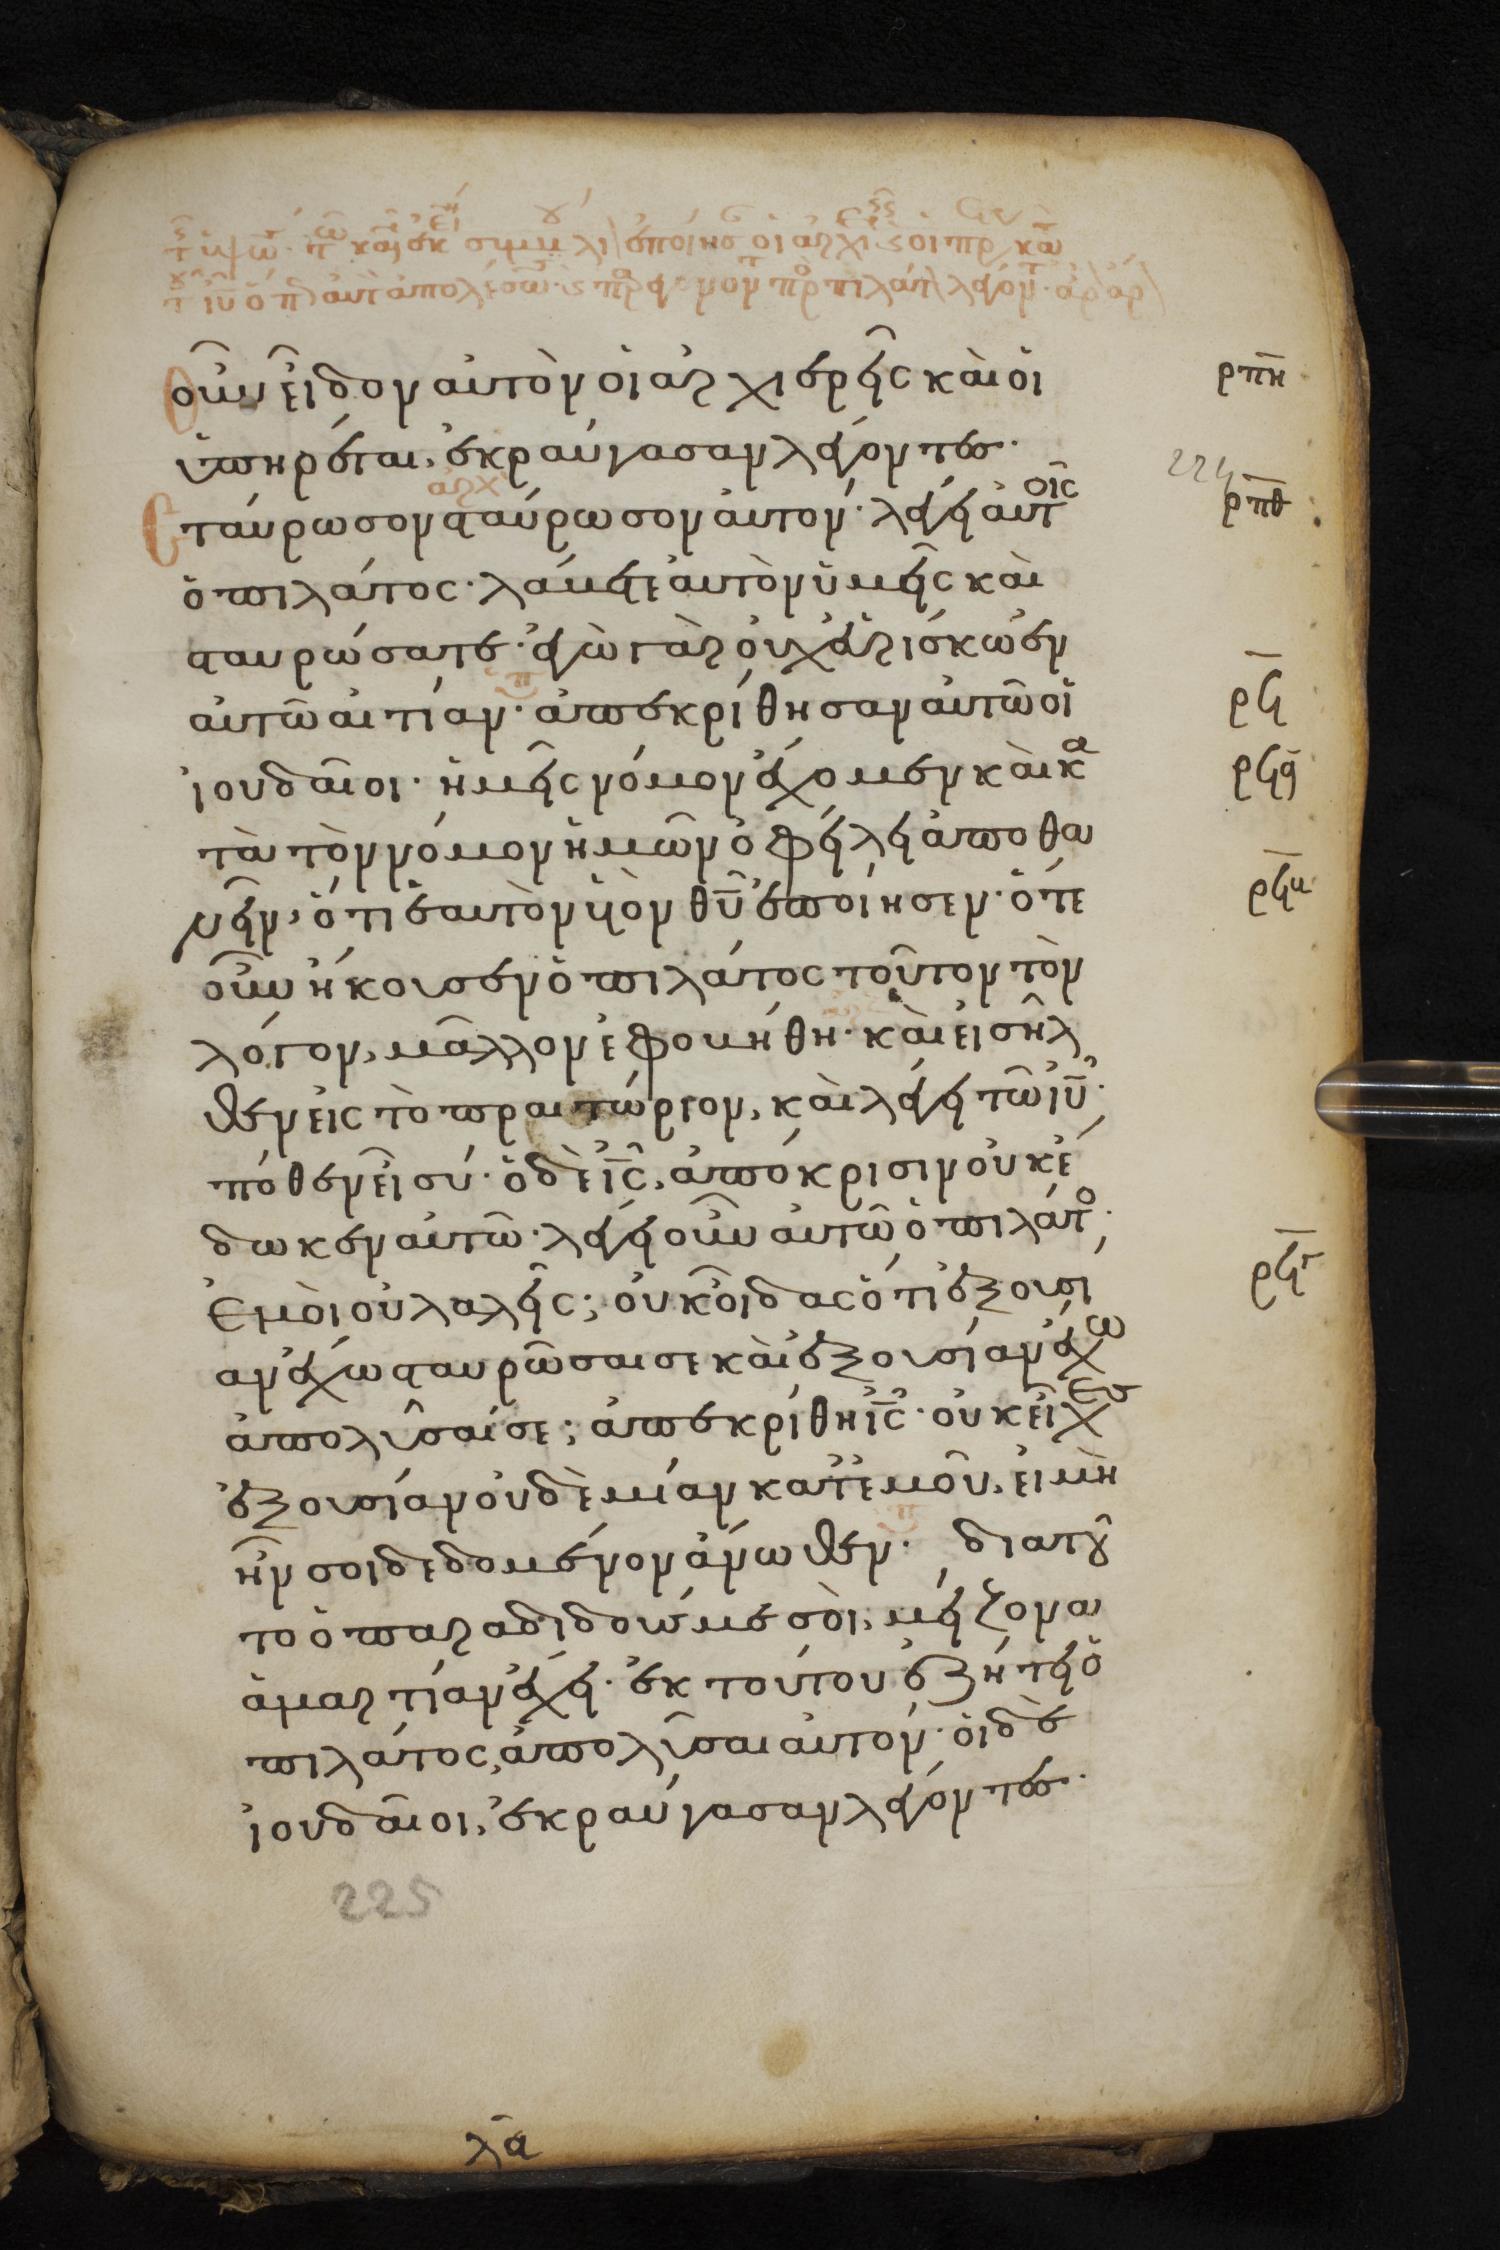 οὖν εἶδον αὐτὸν οἱ ἀρχιερεῖς καὶ οἱ
ὑπηρέται, ἐκραύγασαν λέγοντες·
σταύρωσον σταύρωσον αὐτόν· λέγει αὐτοῖς
ὁ πιλάτος· λάβετε αὐτὸν ὑμεῖς καὶ
σταυρώσατε· ἐγὼ γὰρ οὐχ εὑρίσκω ἐν
αὐτῶ αἰτίαν· ἀπεκρίθησαν αὐτῶ οἱ
ἰουδαῖοι· ἡμεῖς νόμον ἔχομεν καὶ κα
τὰ τὸν νόμον ἡμῶν ὀφείλει ἀποθα
νεῖν, ὅτι ἑαυτὸν υἱὸν θῡ ἐποίησεν· ὅτε
οὖν ἤκουσεν ὁ πιλάτος τοῦτον τὸν
λόγον, μᾶλλον ἐφοβήθη· καὶ εἰσῆλ
θεν εἰς τὸ πραιτώριον, καὶ λέγει τῶ ἰῡ·
πόθεν εἶ σύ· ὁ δὲ ἰς̄, ἀπόκρισιν οὐκ ἔ
δωκεν αὐτῶ· λέγει οὖν αὐτῶ ὁ πιλάτος·
ἐμοὶ οὐ λαλεῖς; οὐκ οἶδας ὅτι ἐξουσί
αν ἔχω σταυρῶσαι σε καὶ ἐξουσίαν ἔχω
ἀπολῦσαί σε; ἀπεκρίθη ἰς̄· οὐκ εἶχες
ἐξουσίαν οὐδὲμίαν κατ' ἐμοῦ, εἰ μὴ
ἦν σοι δεδομένον ἄνωθεν· διατοῦ
το ὁ παραδιδούς με σοὶ, μείζονα
ἁμαρτίαν ἔχει· ἐκ τούτου ἐζήτει ὁ
πιλάτος, ἀπολῦσαι αὐτόν· οἱ δὲ
ἰουδαῖοι, ἐκραύγασαν λέγοντες·
ρπη
224
ρπθ
ρϟ
ρϟα
ρϟβ
ρϟγ
225
λα